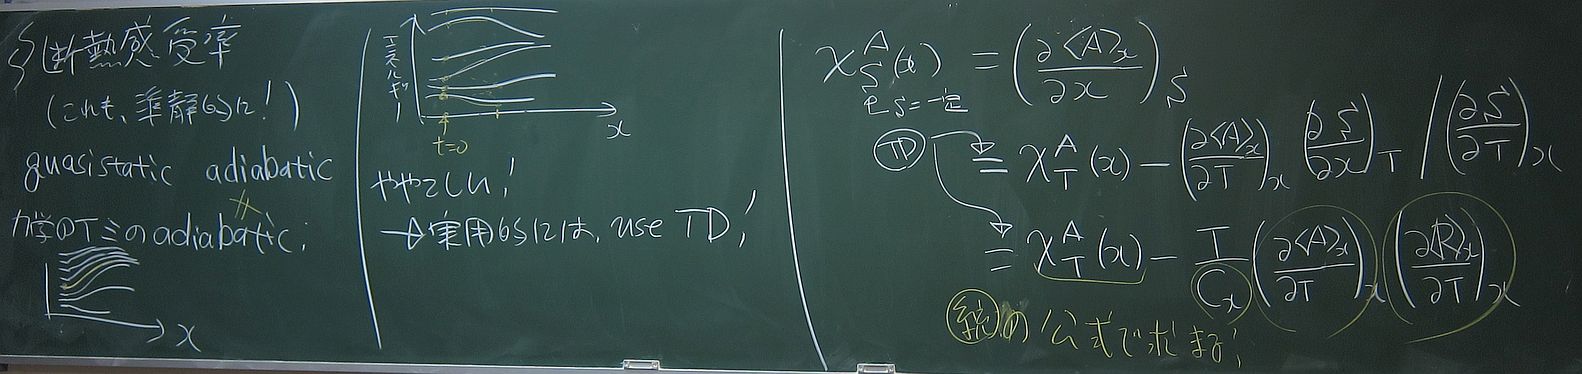 §断熱感受率
(これも、準静的に!)
quasistatic adiabatic
≠
力学のTミのadiabatic.
x
エネルギー
x
t=0
ややこしい!
→実用的には, use TD!
χ_S^A(x) = (∂<A>_x/∂x)_S
S=一定
TD = χ_T^A(x) − (∂<A>_x/∂T)_x (∂S/∂x)_T / (∂S/∂T)_x
= χ_T^A(x) − T/C_x (∂<A>_x/∂T)_x (∂<R>_x/∂T)_x
統の公式で求まる!